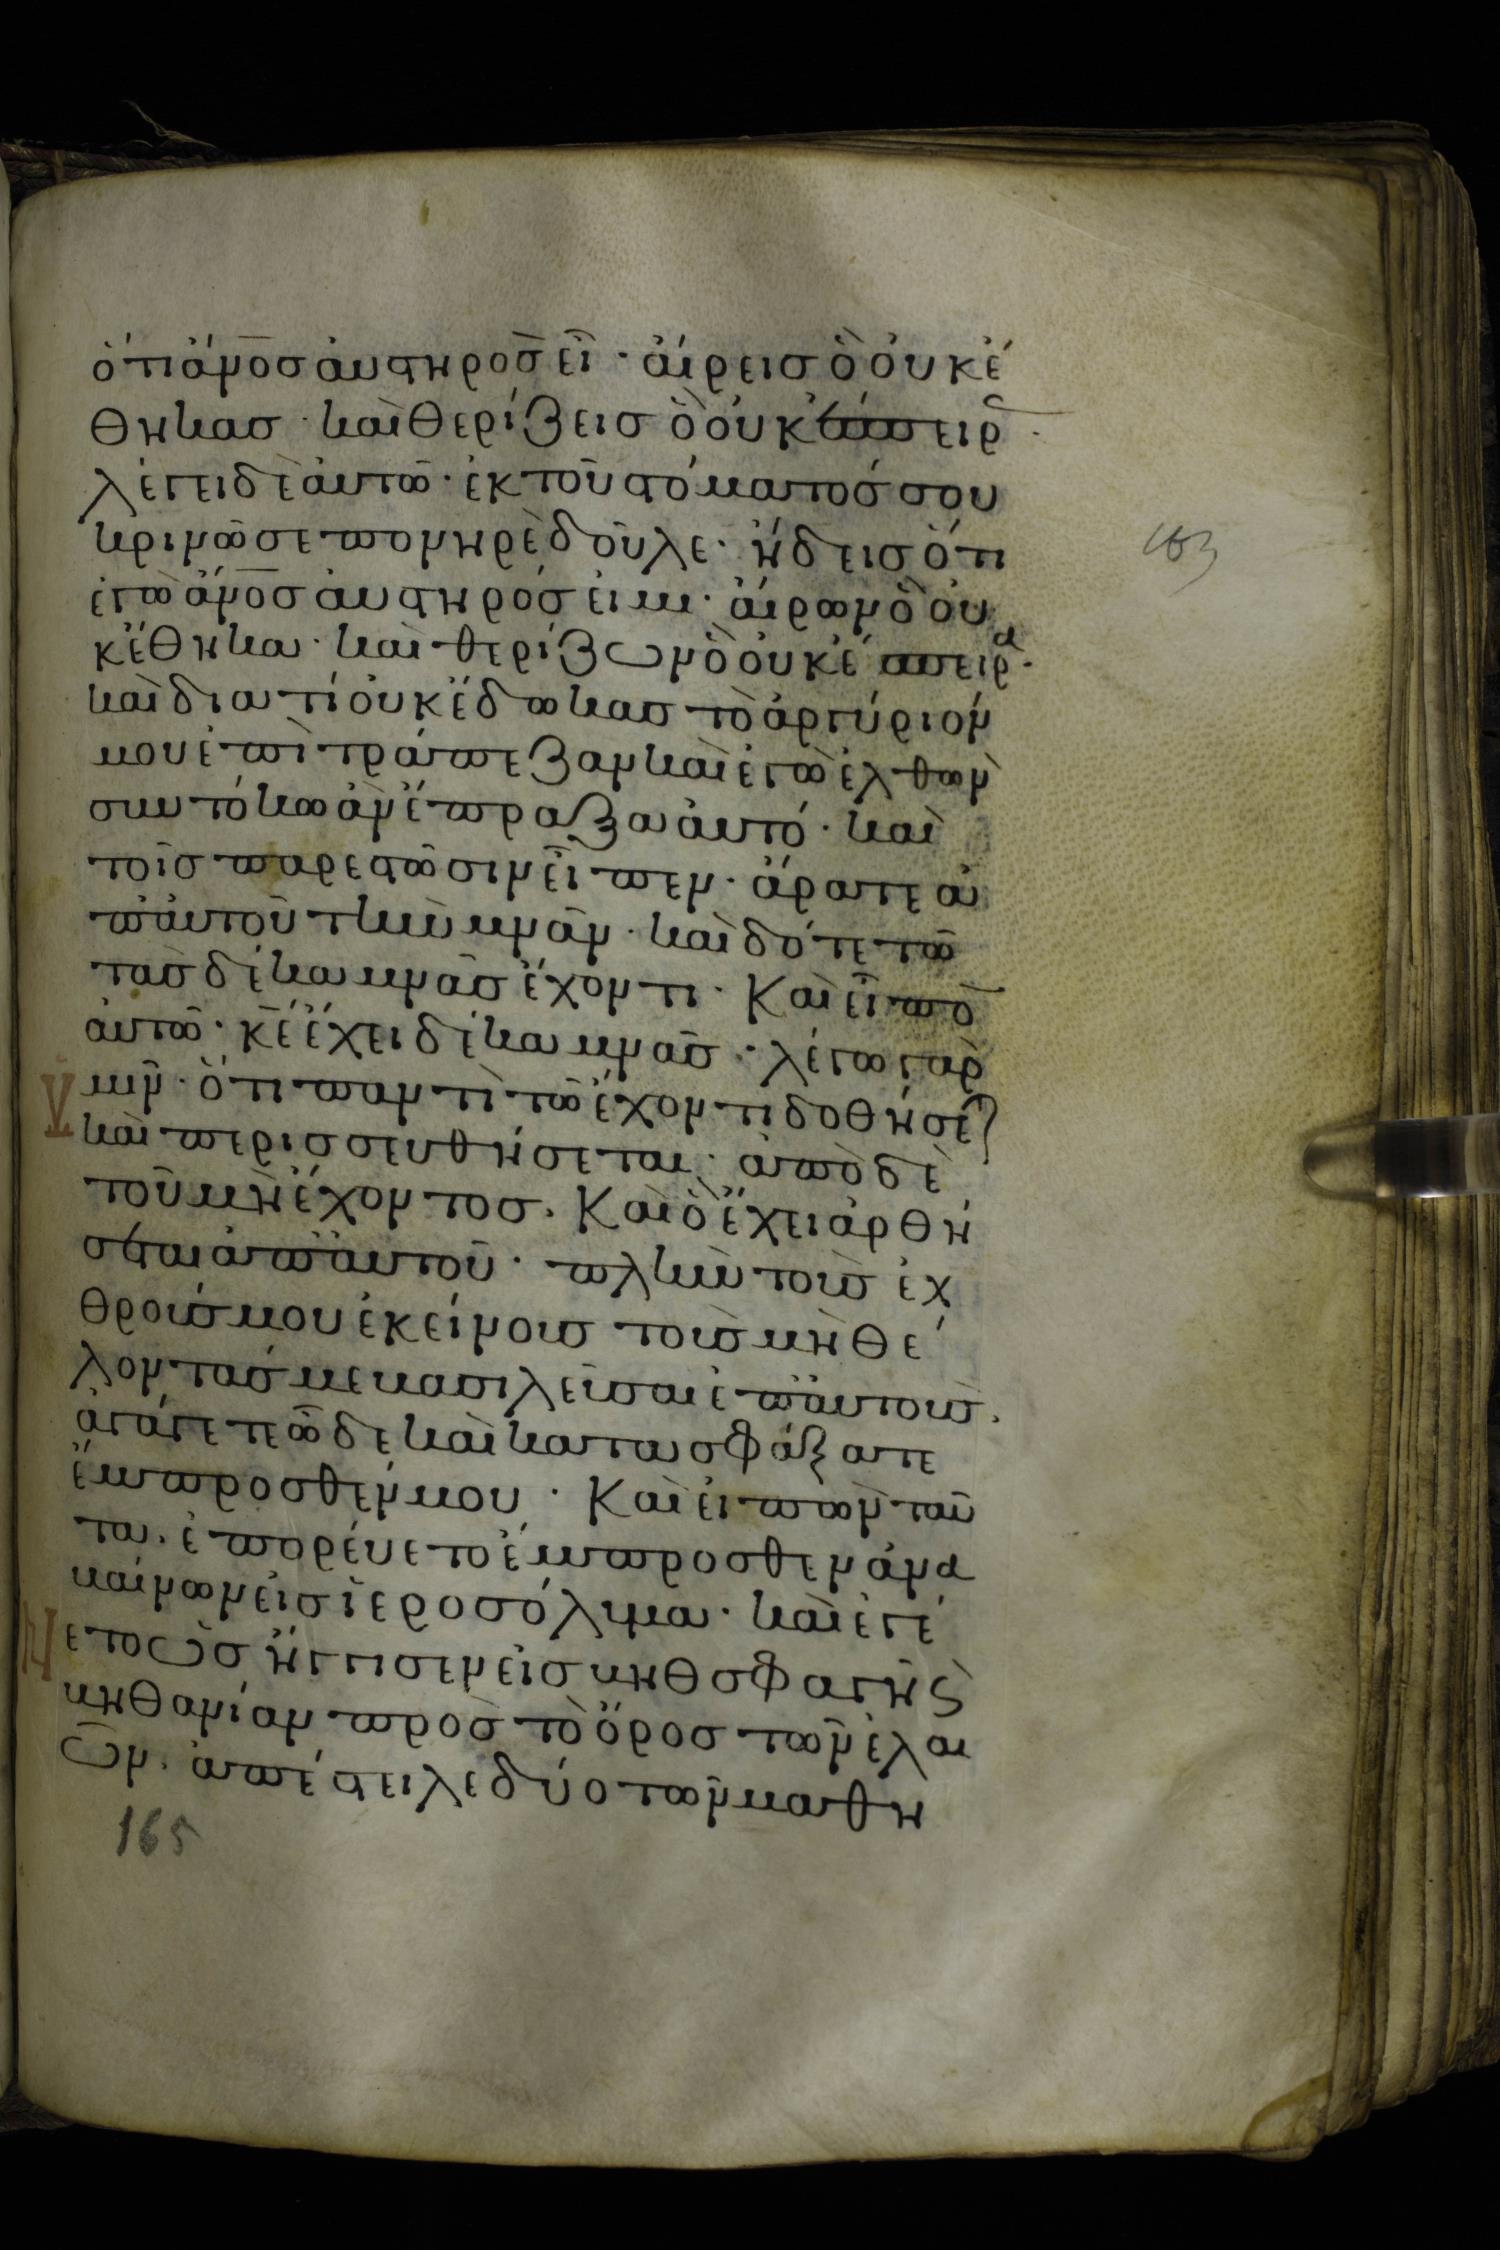 ὅτι ἄν̅ο̅σ̅ αὐστηρὸσ εἶ · αἴρεισ ὃ οὐκ ἔ
θηκασ · καὶ θερίζεισ ὃ οὐκ ἔσπειρ ·
λέγει δὲ αὐτῶ · ἐκ τοῦ στόματόσ σου
κρινῶ σε πονηρὲ δοῦλε · ἤδεισ ὅτι
ἐγὼ ἄν̅ο̅σ̅ αὐστηρόσ εἰμι · αἴρων ὃ οὐ
κ ἔθηκα · καὶ θερίζων ὃ οὐκ ἔσπειρα ·
καὶ διατί οὐκ ἔδωκασ τὸ ἀργύριόν
μου ἐπὶ τράπεζαν καὶ ἐγὼ ἐλθὼν
σὺν τόκω ἂν ἔπραξα αὐτό · καὶ
τοῖσ παρεστῶσιν εἶπεν · ἄρατε ἀ
π' αὐτοῦ τὴν μνᾶν · καὶ δότε τῶ
τὰσ δέκα μνᾶσ ἔχοντι · Καὶ εἶπο
αὐτῶ · κ̅ε̅ ἔχει δέκα μνᾶσ · λέγω γὰρ
ὑμῖν · ὅτι παντὶ τῶ ἔχοντι δοθήσε
καὶ περισσευθήσεται · ἀπὸ δὲ
τοῦ μὴ ἔχοντοσ · Καὶ ὃ ἔχει ἀρθή
σεται ἀπ' αὐτοῦ · πλὴν τοὺσ ἐχ
θρούσ μου ἐκείνουσ τοὺσ μὴ θέ
λοντάσ με βασιλεῦσαι ἐπ' αὐτοὺσ ·
ἀγάγετε ὧδε καὶ κατασφάξατε
ἔμπροσθέν μου · Καὶ εἰπὼν ταῦ
τα · ἐπορεύετο ἔμπροσθεν ἀνα
βαίνων εἰσ ἱεροσόλυμα · καὶ ἐγέ
ετο ὡσ ἤγγισεν εἰσ βηθσφαγὴ ϛ
βηθανίαν πρὸσ τὸ ὄροσ τῶν ἐλαι
ῶν · ἀπέστειλε δύο τῶν μαθη
165
163